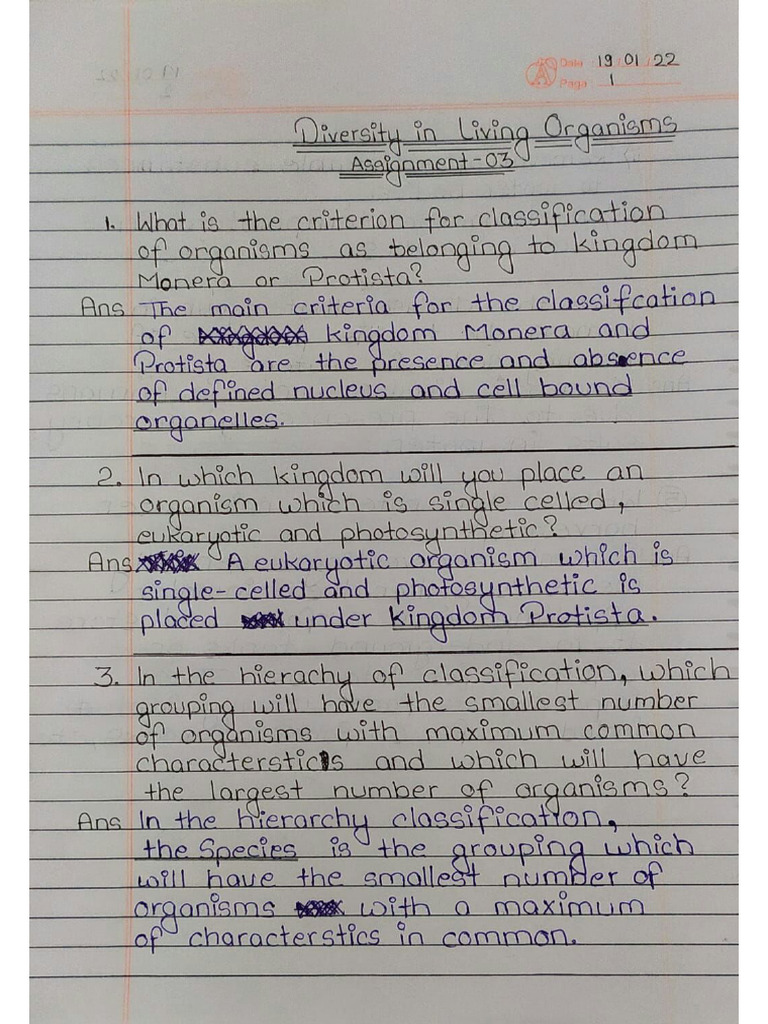 Date 19/01/22
Page 1
Diversity in Living Organisms
Assignment-03
1. What is the criterion for classification
of organisms as belonging to kingdom
Monera or Protista?
Ans The main criteria for the classifcation
of kingdom Monera and
Protista are the presence and absence
of defined nucleus and cell bound
organelles.
2. In which kingdom will you place an
organism which is single celled,
eukaryotic and photosynthetic?
Ans A eukaryotic organism which is
single-celled and photosynthetic is
placed under kingdom Protista.
3. In the hierachy of classification, which
grouping will have the smallest number
of organisms with maximum common
characterstics and which will have
the largest number of organisms?
Ans In the hierarchy classification,
the Species is the grouping which
will have the smallest number of
organisms with a maximum
of characterstics in common.